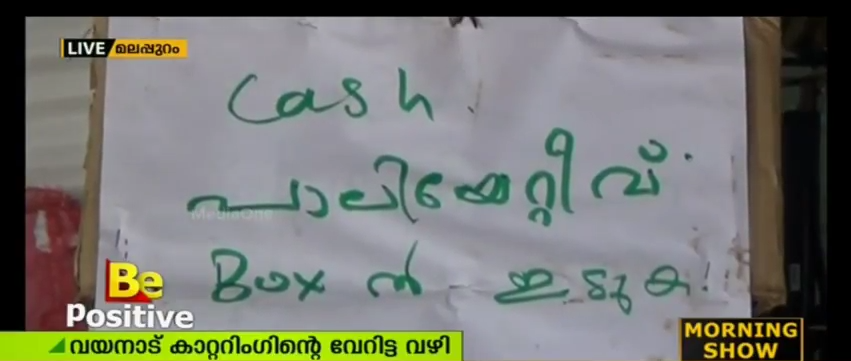 LIVE മലപ്പുറം
Cash
പാലിയേറ്റീവ്
MediaOne
Box ൽ ഇടുക
Be
Positive
വയനാട് കാറ്ററിംഗിന്റെ വേറിട്ട വഴി
MORNING
SHOW